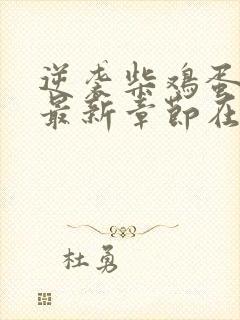 逆袭柴鸡蛋
最新章节在
杜勇